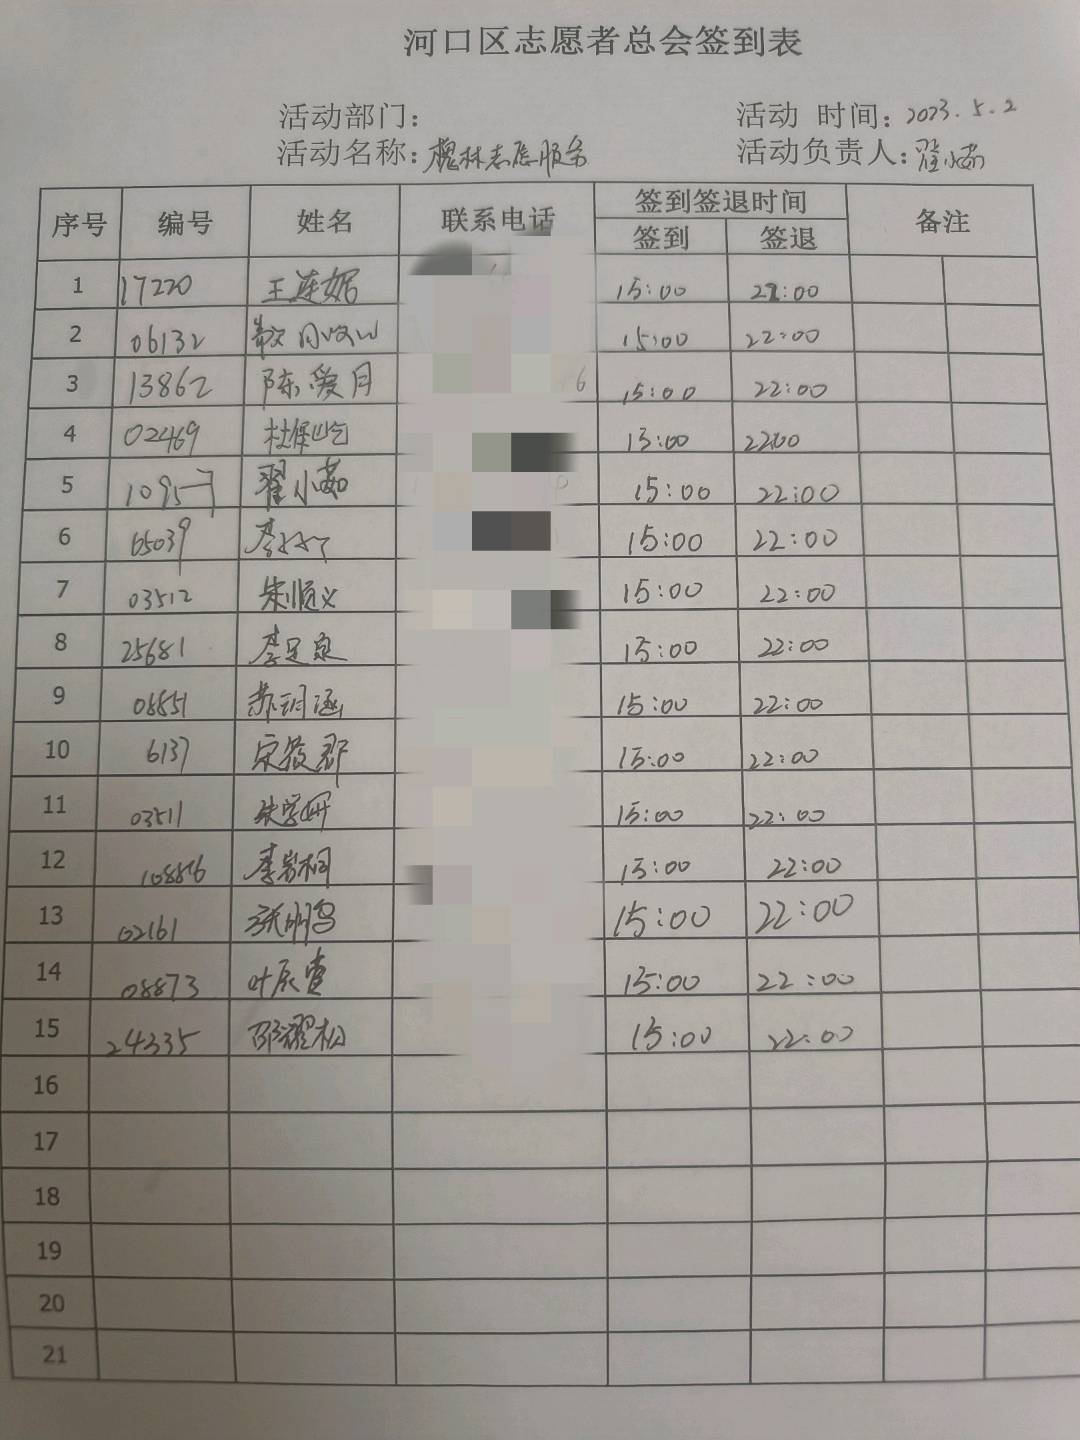 河口区志愿者总会签到表
活动部门： 活动 时间：2023.5.2
活动名称：槐林志愿服务 活动负责人：翟小茹
序号 编号 姓名 联系电话 签到签退时间 备注
签到 签退
1 17220 王连妮 15:00 22:00
2 06132 15:00 22:00
3 13862 陈爱月 6 15:00 22:00
4 02469 15:00 22:00
5 翟小茹 15:00 22:00
6 05039 李 15:00 22:00
7 03512 朱顺义 15:00 22:00
8 25681 李足泉 15:00 22:00
9 苏玥涵 15:00 22:00
10 6137 宋 15:00 22:00
11 03511 朱学妍 15:00 22:00
12 李岩桐 15:00 22:00
13 02161 15:00 22:00
14 08873 叶辰 15:00 22:00
15 24335 邵耀松 15:00 22:00
16
17
18
19
20
21